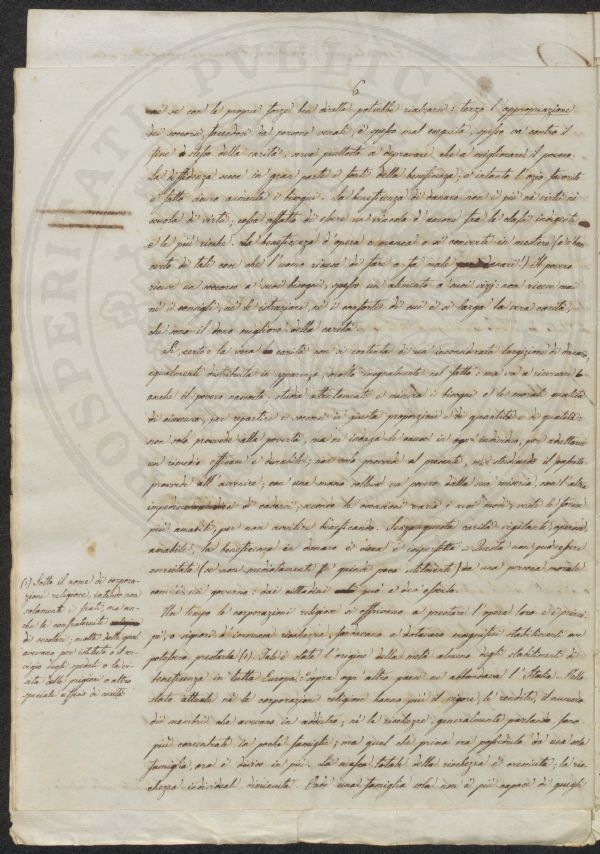 6
se con le proprie forze ben diretto potrebbe rialzarsi: terzo l'appropriazione
dei soccorsi, facendosi da persone venali, è spesso mal eseguita, spesso va contro il
fine stesso della carità, serve piuttosto a depravare che a migliorare il povero.
La diffidenza secca in gran parte i fonti della beneficenza; e intanto l'ozio favorito
e fatto ardito aumenta i bisogni. La beneficenza di danaro non è più nè virtù nè
scuola di virtù; cessa affatto di essere un vincolo d'amore fra le classi indigenti
e le più ricche. La beneficenza d'opera o manca o si converte in mestiere (e
di tali cose che l'uomo ricusa di fare o fa male per danari!) Il povero
riceve un soccorso a' suoi bisogni, spesso un alimento a' suoi vizj: non riceve mai
nè i consigli, nè le istruzioni, nè i conforti di cui è sì larga la vera carità,
che sono il dono migliore della carità.
Sì, certo: la vera carità non si contenta di una inconsiderata largizione di danaro,
egualmente distribuita in apparenza, molto inegualmente nel fatto: ma va a ricercare
anche il povero nascosto, studia attentamente e misura i bisogni e le morali qualità
di ciascuno, per ripartire i soccorsi in giusta proporzione e di quantità e di qualità:
non solo provvede alla povertà, ma ne indaga le cause in ogni individuo, per adattarvi
un rimedio efficace e durabile; non solo provvede al presente, ma studiando il passato
provvede all'avvenire; con una mano solleva un povero dalla sua miseria, con l'altra
impedisce di cadervi; secondo le occasioni varia i suoi modi, veste le forme
più amabili, per non avvilire beneficando. Senza questa carità vigilante, operosa,
amabile, la beneficenza in danaro è cieca e imperfetta. Questa non può essere
esercitata (se non mediatamente e quindi poco utilmente) da una persona morale
com'è un governo: dai cittadini può e dev'esserlo.
Un tempo le corporazioni religiose si offerivano a prestare l'opera loro e i princi-
pi, o signori di immensa ricchezza, fondavano e dotavano magnifici stabilimenti ove
potessero prestarla (1). Tal è stata l'origine della metà almeno degli stabilimenti di
beneficenza in tutta Europa: sopra ogni altro paese ne abbondava l'Italia. Nello
stato attuale nè le corporazioni religiose hanno più il vigore, le rendite, il numero
dei membri che avevano in addietro; nè le ricchezze, generalmente parlando, sono
più concentrate in poche famiglie; ma quel che prima era posseduto da una sola
famiglia, ora è diviso in più. La massa totale della ricchezza è cresciuta; la ric-
chezza individual diminuita. Onde una famiglia sola non è più capace di quegli
(1) Sotto il nome di corpora-
zioni religiose, intendo non
solamente i frati, ma an-
che le confraternite
di secolari; molte delle quali
avevano per istituto o il ser-
vigio degli spedali o la vi-
sita delle prigioni o altro
speciale uffizio di carità.
PROSPERITATI PVBLICAE